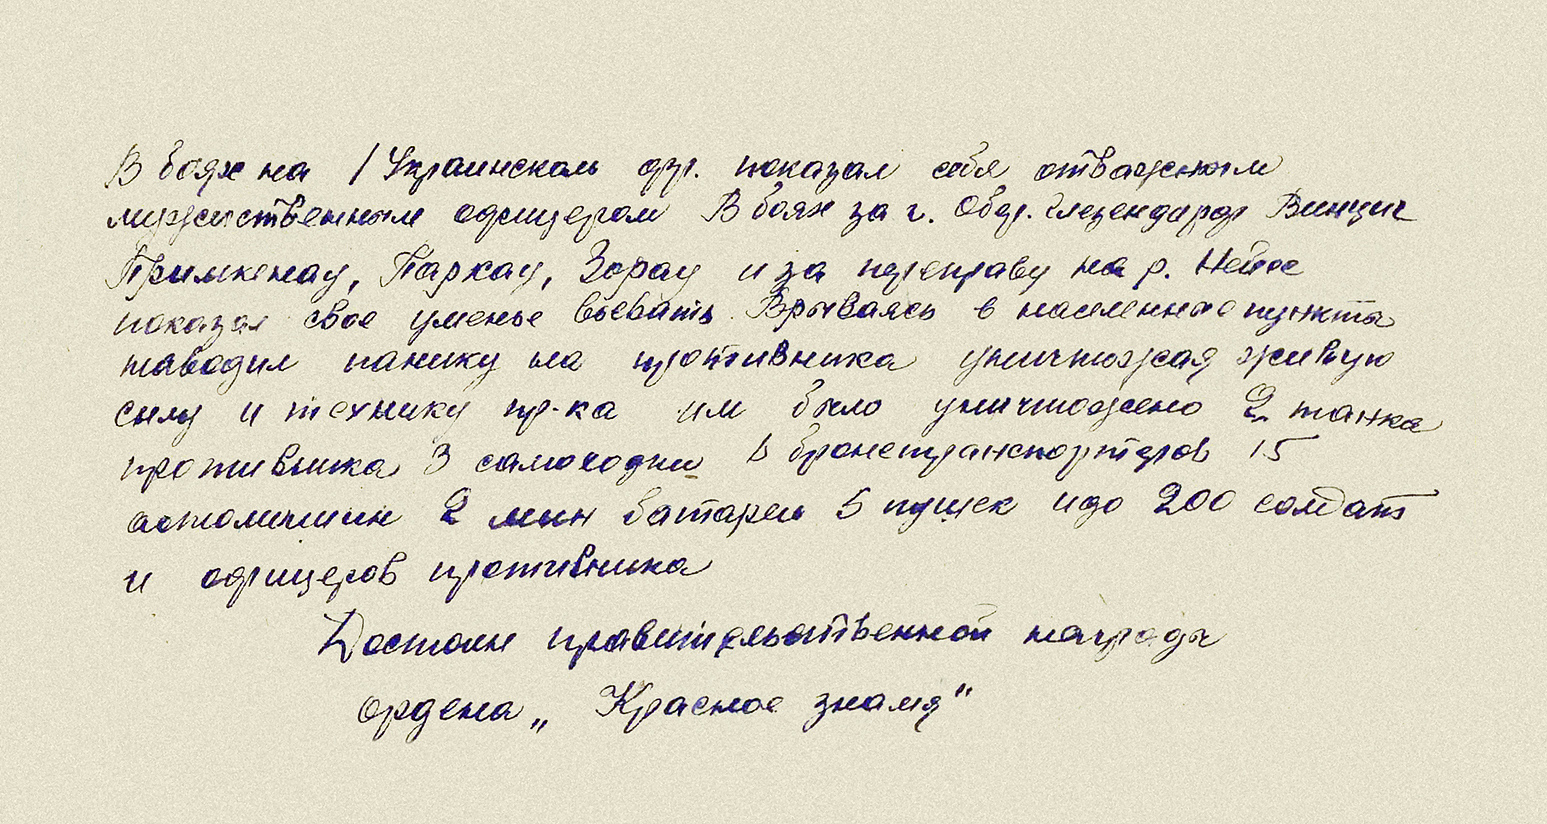 В боях на 1 Украинском фр. показал себя отважным
мужественным офицером В боях за г. Обер. Глезендорф Винциг
Примкенау, Паркау, Зорау и за переправу на р. Нейсе
показал свое уменье воевать. Врываясь в населенные пункты
наводил панику на противника уничтожая живую
силу и технику пр-ка им было уничтожено 2 танка
противника 3 самоходки 6 бронетранспортеров 15
автомашин 2 мин батареи 5 пушек и до 200 солдат
и офицеров противника
Достоин правительственной награды
ордена „Красное знамя"